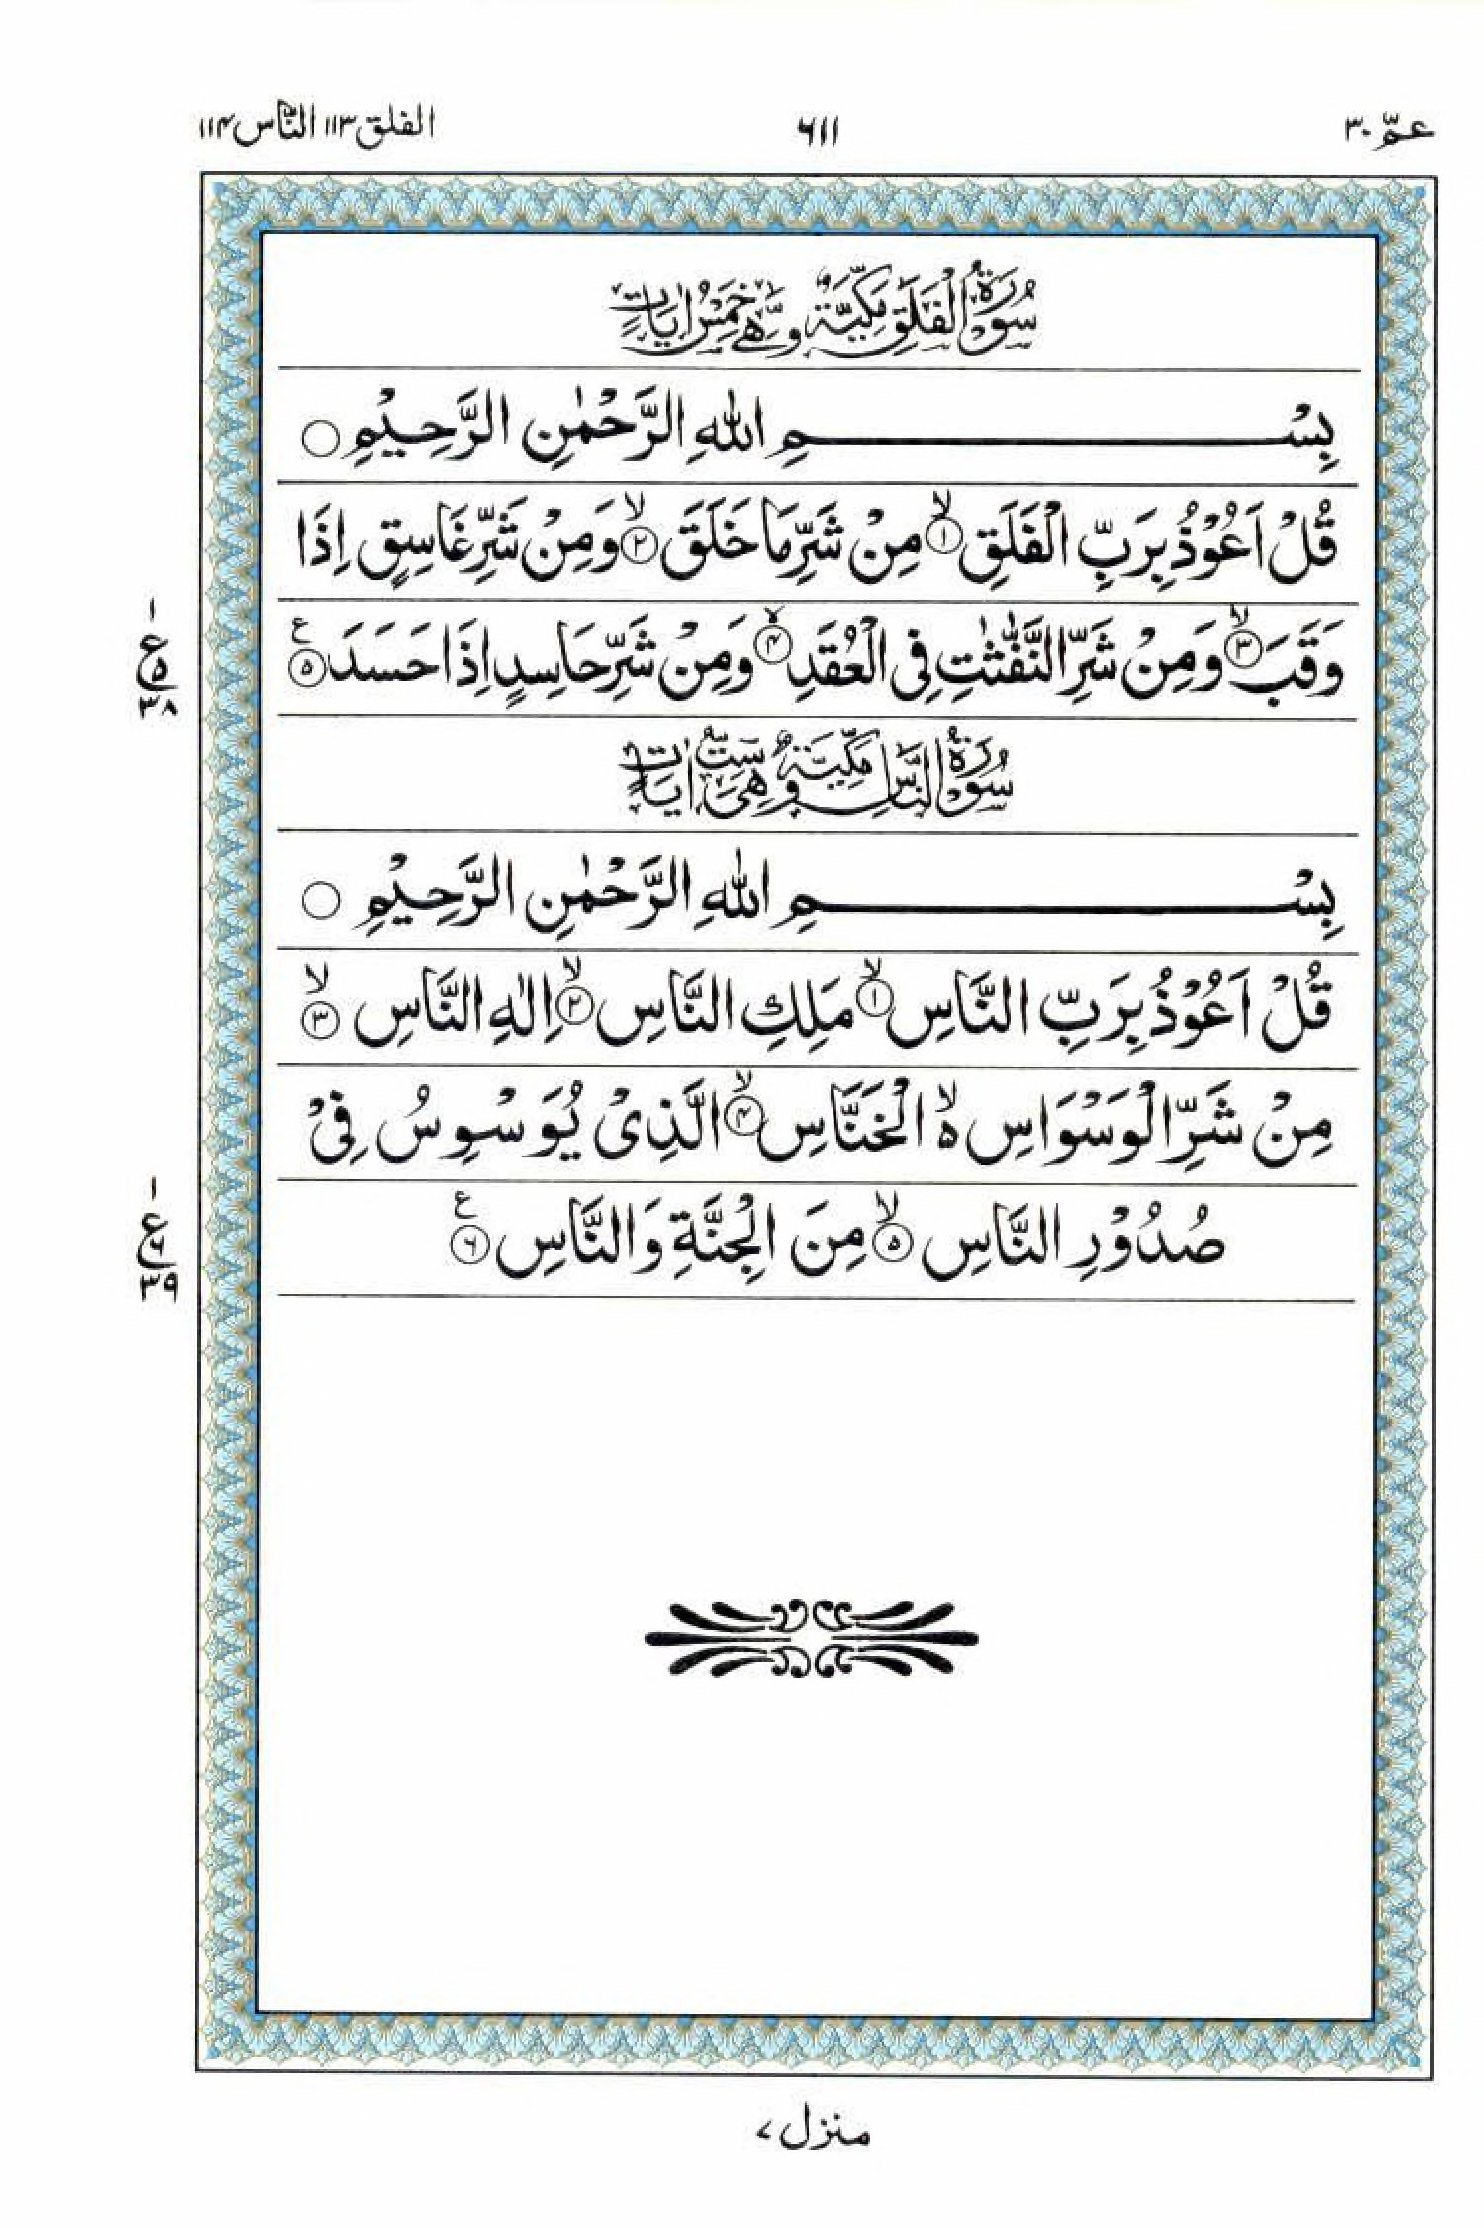 عمّ ۳۰ ۶۱۱ الفلق ۱۱۳ النّاس ۱۱۴
سُوْرَةُ الْفَلَقِ مَكِّيَّةٌ وَّهِيَ خَمْسُ اٰيَاتٍ
بِسْمِ اللهِ الرَّحْمٰنِ الرَّحِيْمِ ○
قُلْ اَعُوْذُ بِرَبِّ الْفَلَقِ ۙ﴿۱﴾ مِنْ شَرِّ مَا خَلَقَ ۙ﴿۲﴾ وَمِنْ شَرِّ غَاسِقٍ اِذَا
وَقَبَ ۙ﴿۳﴾ وَمِنْ شَرِّ النَّفّٰثٰتِ فِي الْعُقَدِ ۙ﴿۴﴾ وَمِنْ شَرِّ حَاسِدٍ اِذَا حَسَدَ ﴿۵﴾ ع
۱ ع ۵ ۳۸
سُوْرَةُ النَّاسِ مَكِّيَّةٌ وَّهِيَ سِتُّ اٰيَاتٍ
بِسْمِ اللهِ الرَّحْمٰنِ الرَّحِيْمِ ○
قُلْ اَعُوْذُ بِرَبِّ النَّاسِ ۙ﴿۱﴾ مَلِكِ النَّاسِ ۙ﴿۲﴾ اِلٰهِ النَّاسِ ۙ﴿۳﴾
مِنْ شَرِّ الْوَسْوَاسِ ۙ۵ الْخَنَّاسِ ۙ﴿۴﴾ الَّذِيْ يُوَسْوِسُ فِيْ
صُدُوْرِ النَّاسِ ۙ﴿۵﴾ مِنَ الْجِنَّةِ وَالنَّاسِ ﴿۶﴾ ع
۱ ع ۶ ۳۹
منزل ۷